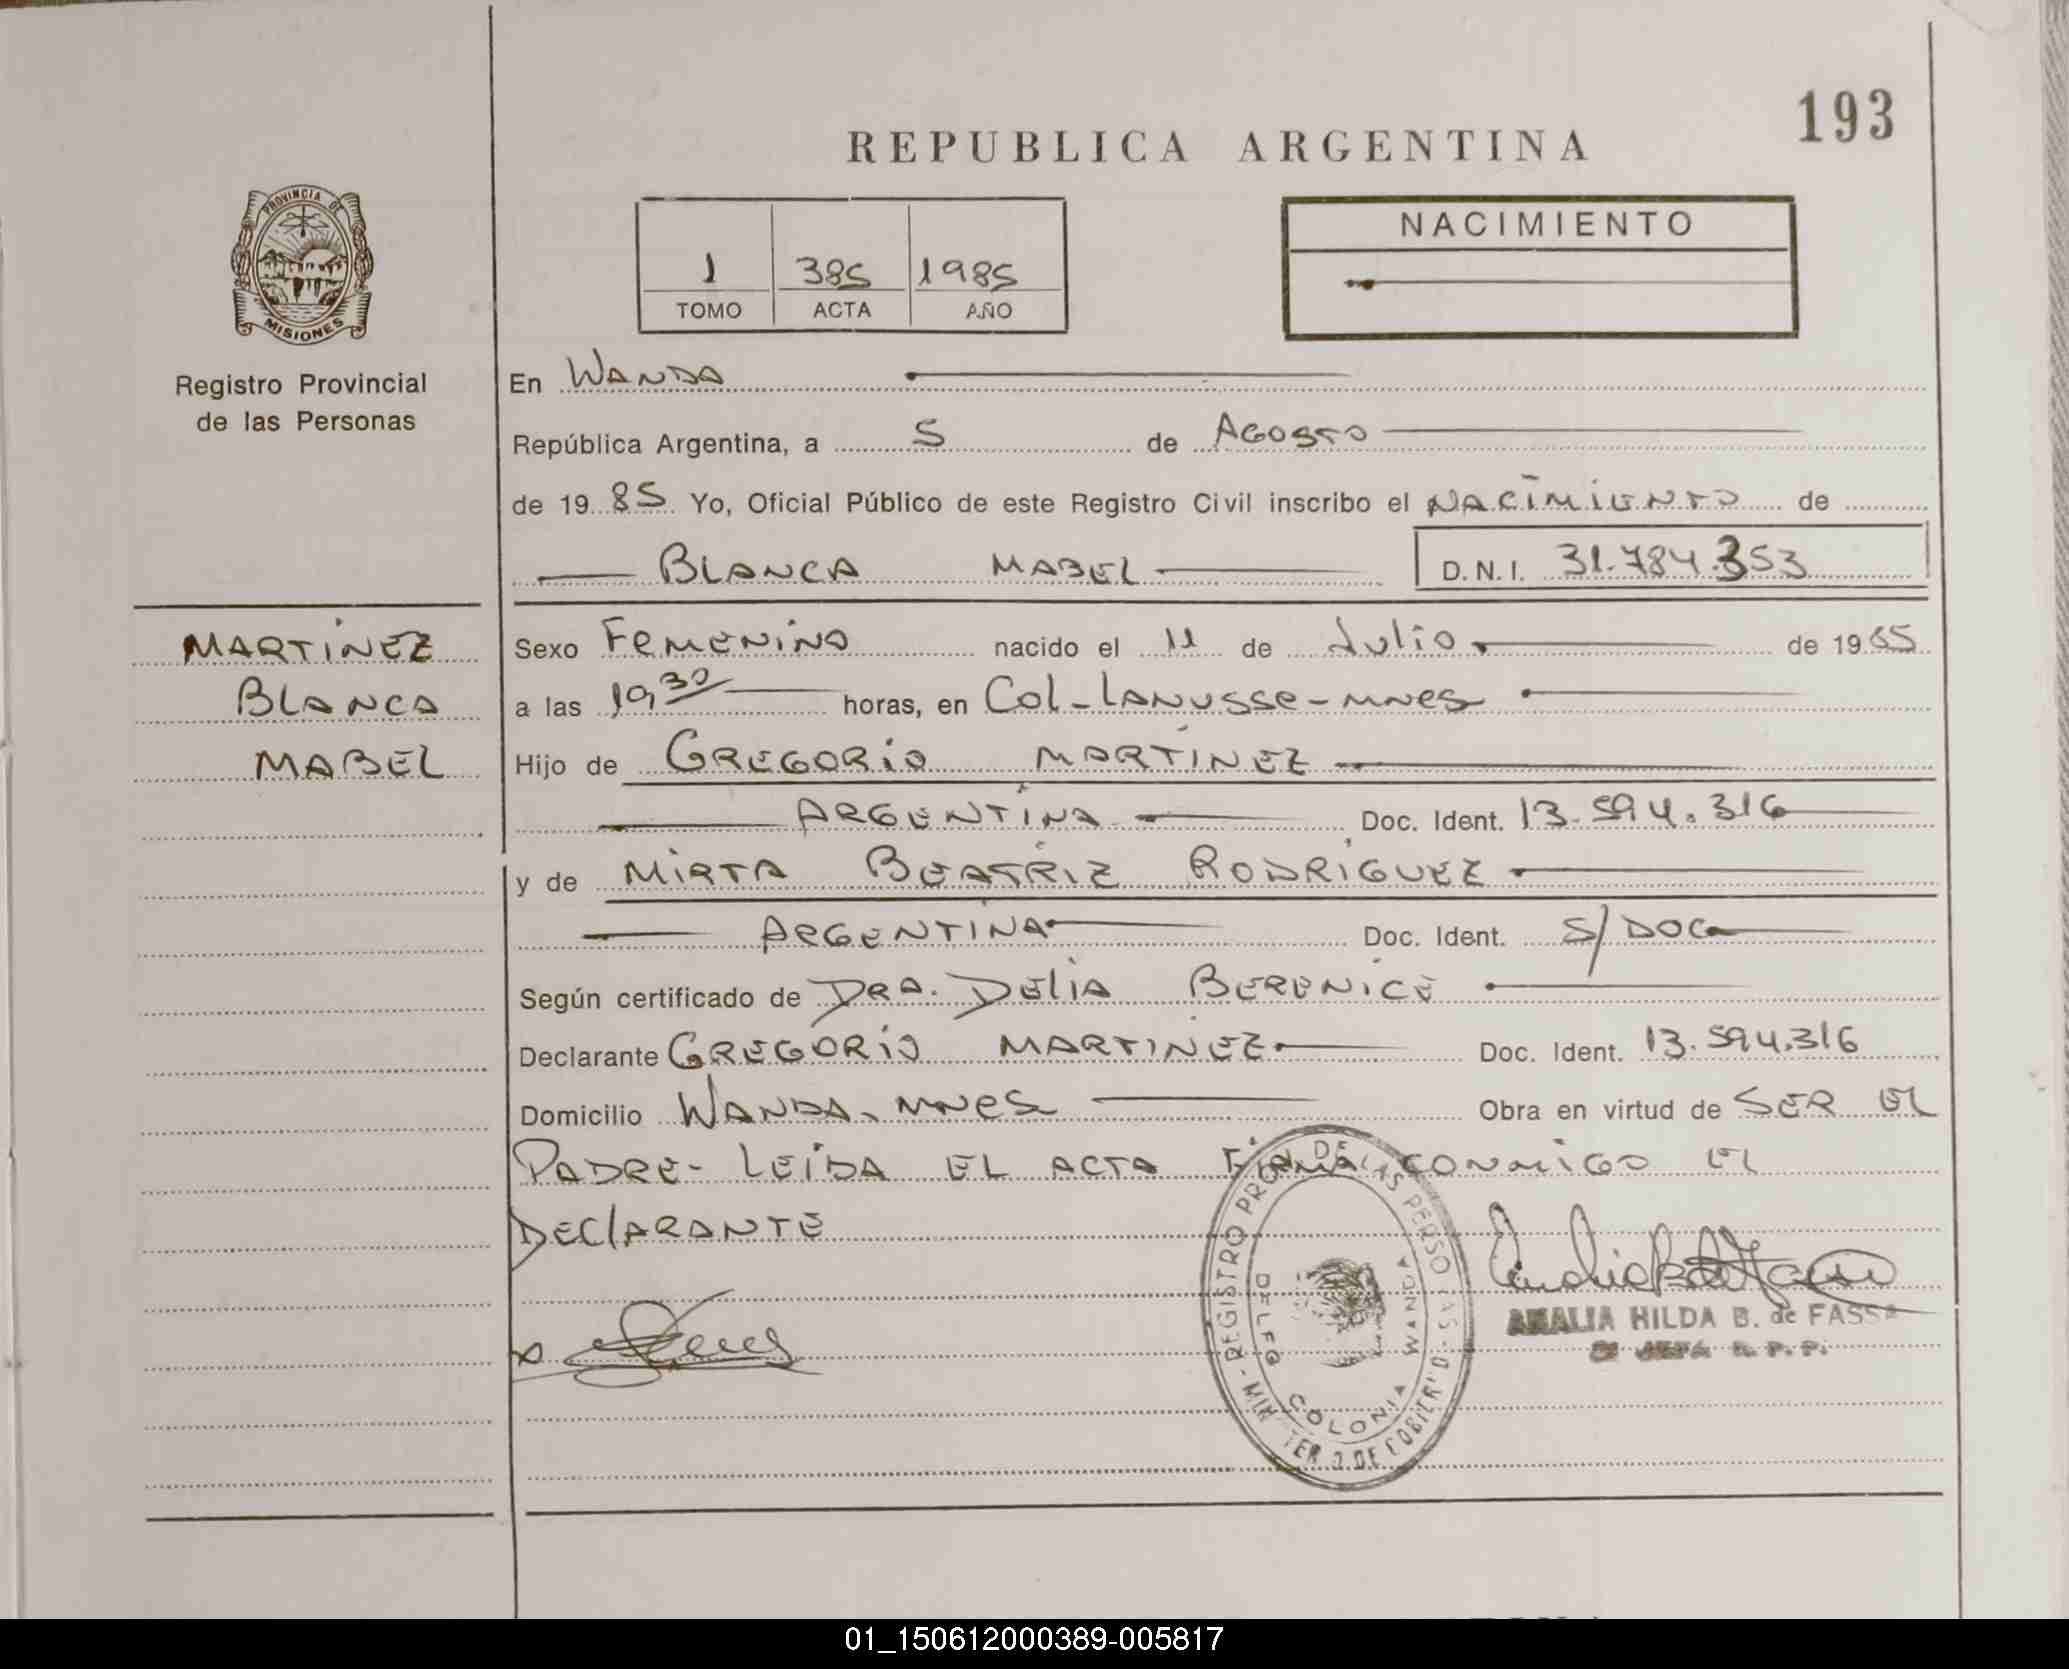 193
REPUBLICA ARGENTINA
PROVINCIA DE
MISIONES
Registro Provincial
de las Personas
NACIMIENTO
1 385 1985
TOMO ACTA AÑO
En WANDA
República Argentina, a 5 de AGOSTO
de 19 85 Yo, Oficial Público de este Registro Civil inscribo el NACIMIENTO de
BLANCA MABEL D.N.I. 31.784.353
MARTINEZ
BLANCA
MABEL
Sexo FEMENINO nacido el 11 de Julio de 19 65
a las 19,30 horas, en Col-LANUSSE-MNES
Hijo de GREGORIO MARTINEZ
ARGENTINA Doc. Ident. 13.594.316
y de MIRTA BEATRIZ RODRIGUEZ
ARGENTINA Doc. Ident. S/DOC
Según certificado de DRA. DELIA BERENICE
Declarante GREGORIO MARTINEZ Doc. Ident. 13.594.316
Domicilio WANDA-MNES Obra en virtud de SER EL
PADRE- LEIDA EL ACTA FIRMA CONMIGO EL
DECLARANTE
REGISTRO PROV. DE LAS PERSONAS
COLONIA WANDA
AMALIA HILDA B. de FASSA
JEFA R.P.P.
01_150612000389-005817